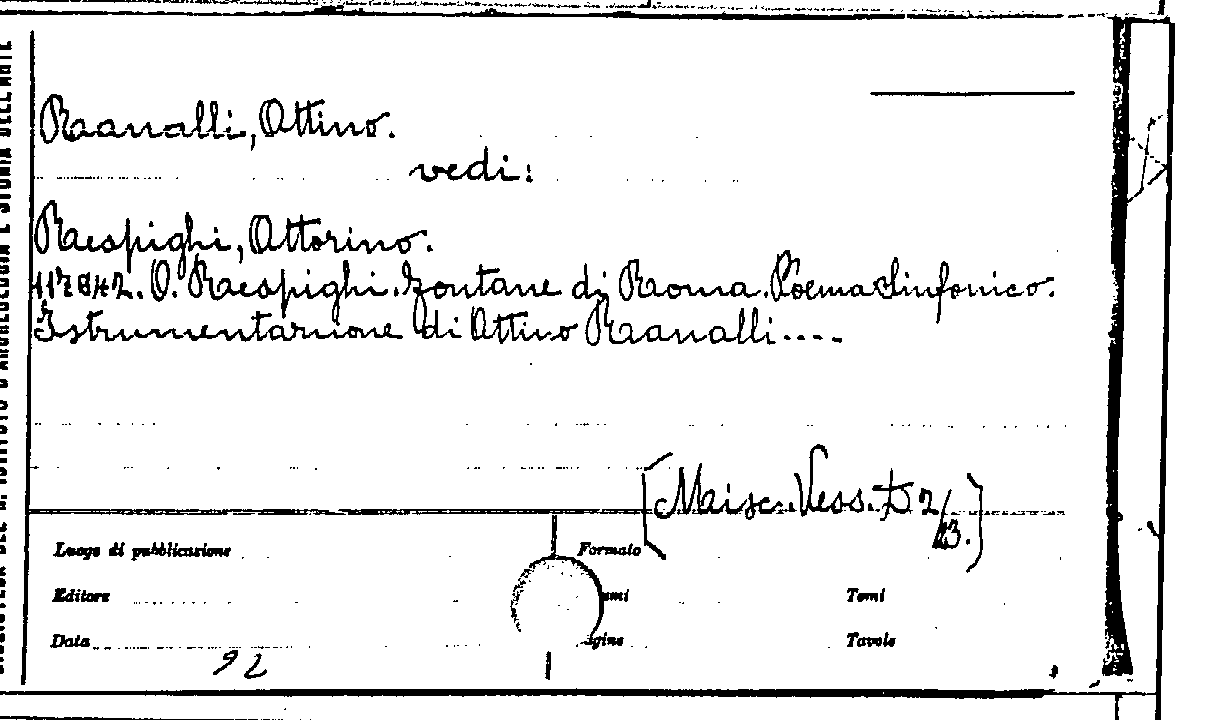 BIBLIOTECA DEL R. ISTITUTO D'ARCHEOLOGIA E STORIA DELL'ARTE
Ranalli, Ottino.
vedi:
Respighi, Ottorino.
117842. O. Respighi. Fontane di Roma. Poema Sinfonico.
Istrumentazione di Ottino Ranalli....
[Misc. Vess. D 2/
13.]
Luogo di pubblicazione
Formato
Editore
umi
Tomi
Data
agine
Tavole
92